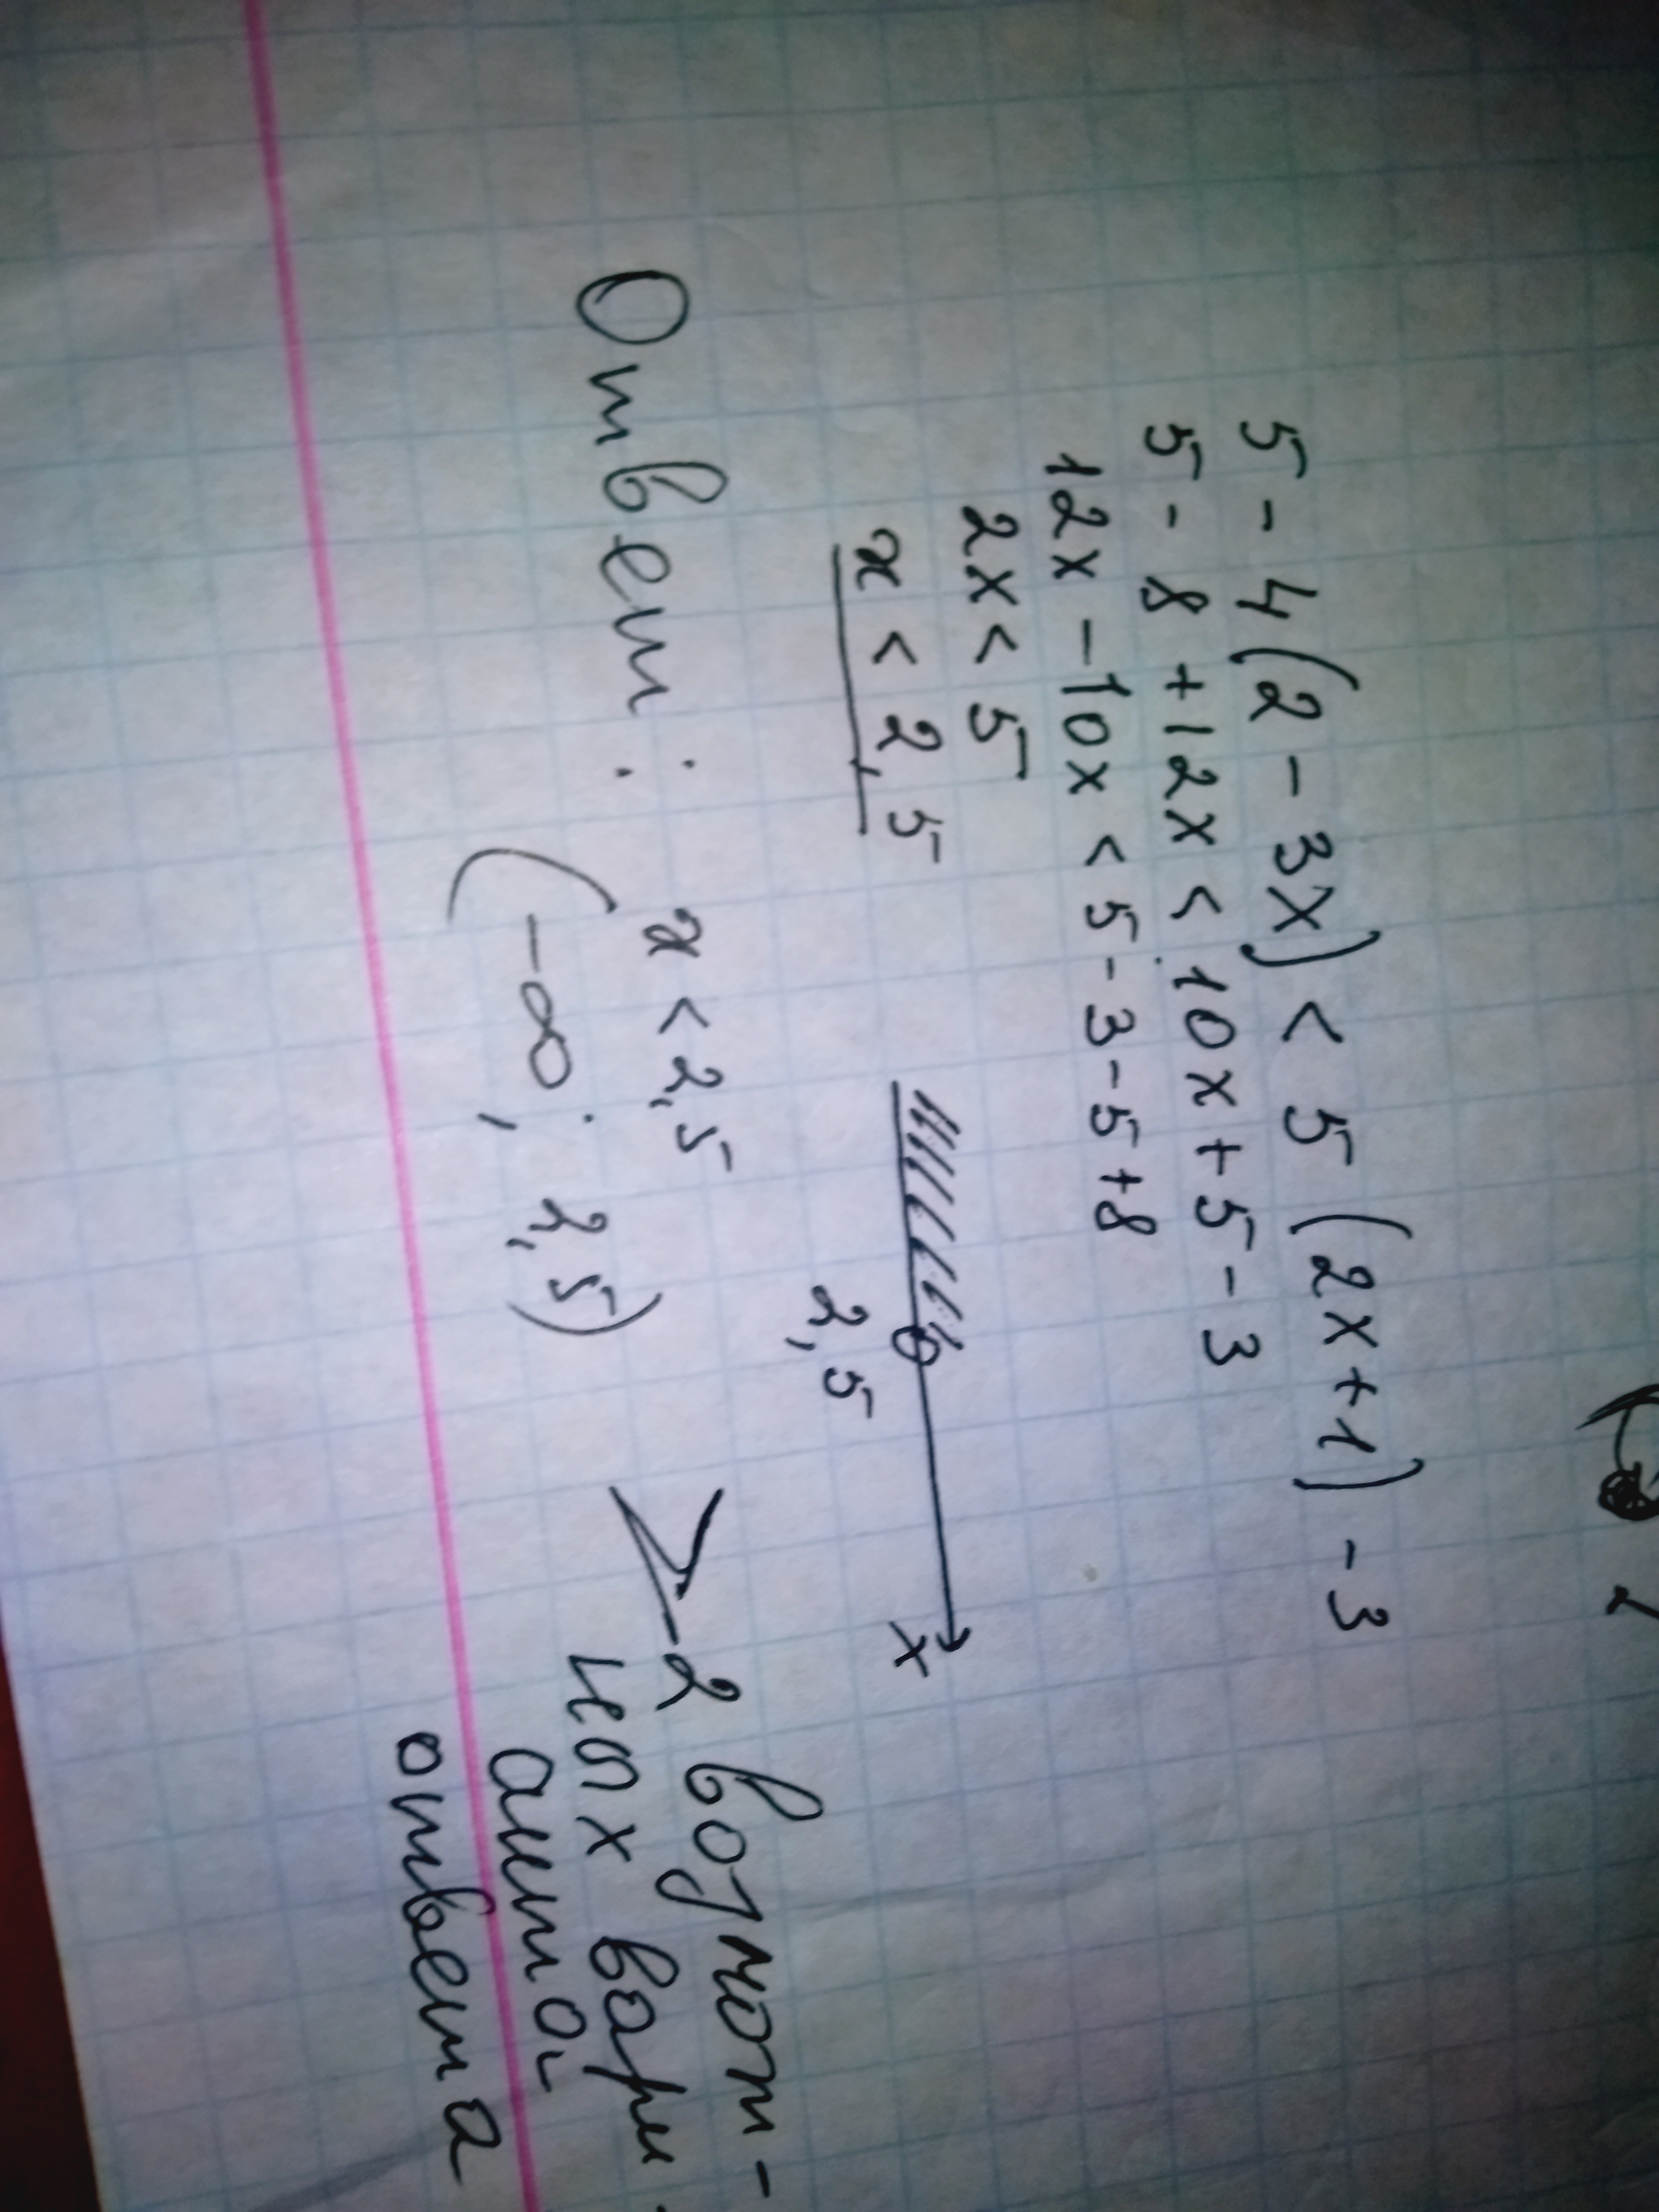 5 - 4(2 - 3x) < 5(2x+1) - 3
5 - 8 + 12x < 10x + 5 - 3
12x - 10x < 5 - 3 - 5 + 8
2x < 5
x < 2,5
x
2,5
Ответ: x < 2,5
(-∞; 2,5)
2 возмож-
ных вари-
анта
ответа